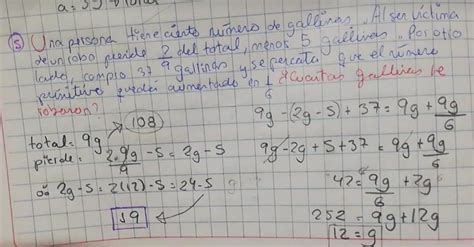 a = 39
⑤ Una persona tiene cierto número de gallinas. Al ser víctima
de un robo pierde 2/9 del total, menos 5 gallinas. Por otro
lado, compro 37 gallinas y se percata que el número
primitivo quedó aumentado en 1/6 ¿Cuantas gallinas le
robaron?
108
total = 9g
pierde: 2·9g/9 - 5 = 2g - 5
2g - 5 = 2(12) - 5 = 24 - 5
19
9g - (2g - 5) + 37 = 9g + 9g/6
9g - 2g + 5 + 37 = 9g + 9g/6
42 = 9g/6 + 2g
252 = 9g + 12g
12 = g